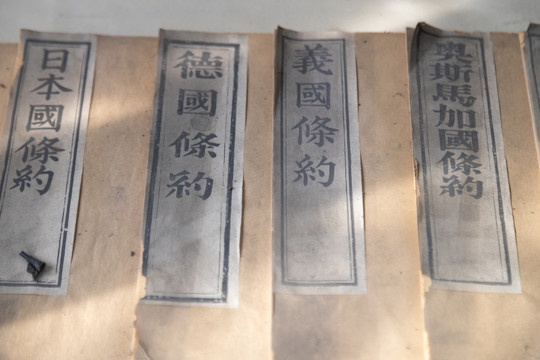 日本國條約
德國條約
義國條約
奥斯馬加國條約